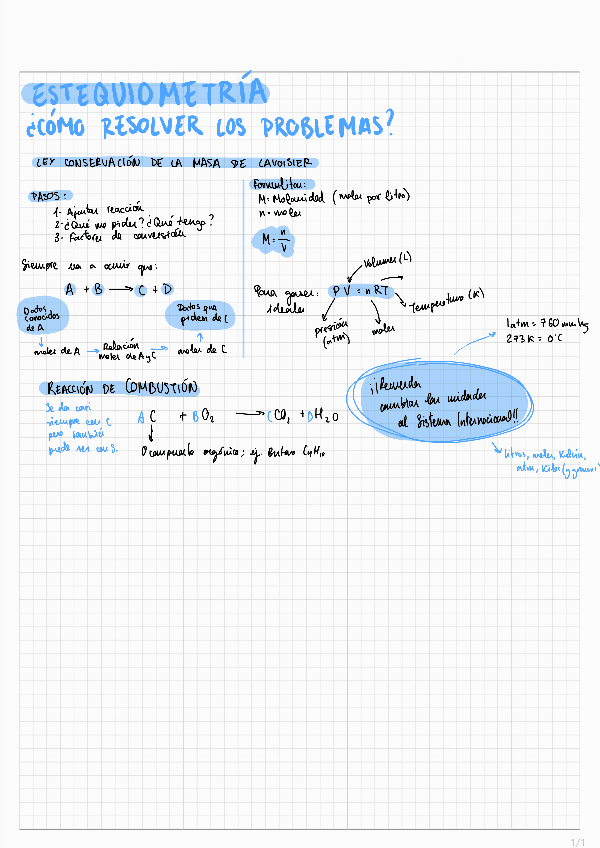 ESTEQUIOMETRÍA
¿CÓMO RESOLVER LOS PROBLEMAS?
LEY CONSERVACIÓN DE LA MASA DE LAVOISIER
PASOS:
1- Ajustar reacción
2- ¿Qué me piden? ¿Qué tengo?
3- Factores de conversión
Siempre va a ocurrir que:
A + B → C + D
Datos conocidos de A
Datos que piden de C
moles de A → Relación moles de A y C → moles de C
Formulitas:
M = Molaridad (moles por litro)
n = moles
M = n/V
Para gases ideales:
PV = nRT
Volumen (L)
Temperatura (K)
presión (atm)
moles
1 atm = 760 mmHg
273 K = 0°C
¡¡Recuerda
cambiar las unidades
al Sistema Internacional!!
litros, moles, Kelvin,
atm, Kilos (y gramos)
REACCIÓN DE COMBUSTIÓN
Se da casi
siempre con C
pero también
puede ser con S.
A C + B O₂ → C CO₂ + D H₂O
O compuesto orgánico; ej butano C₄H₁₀
1/1